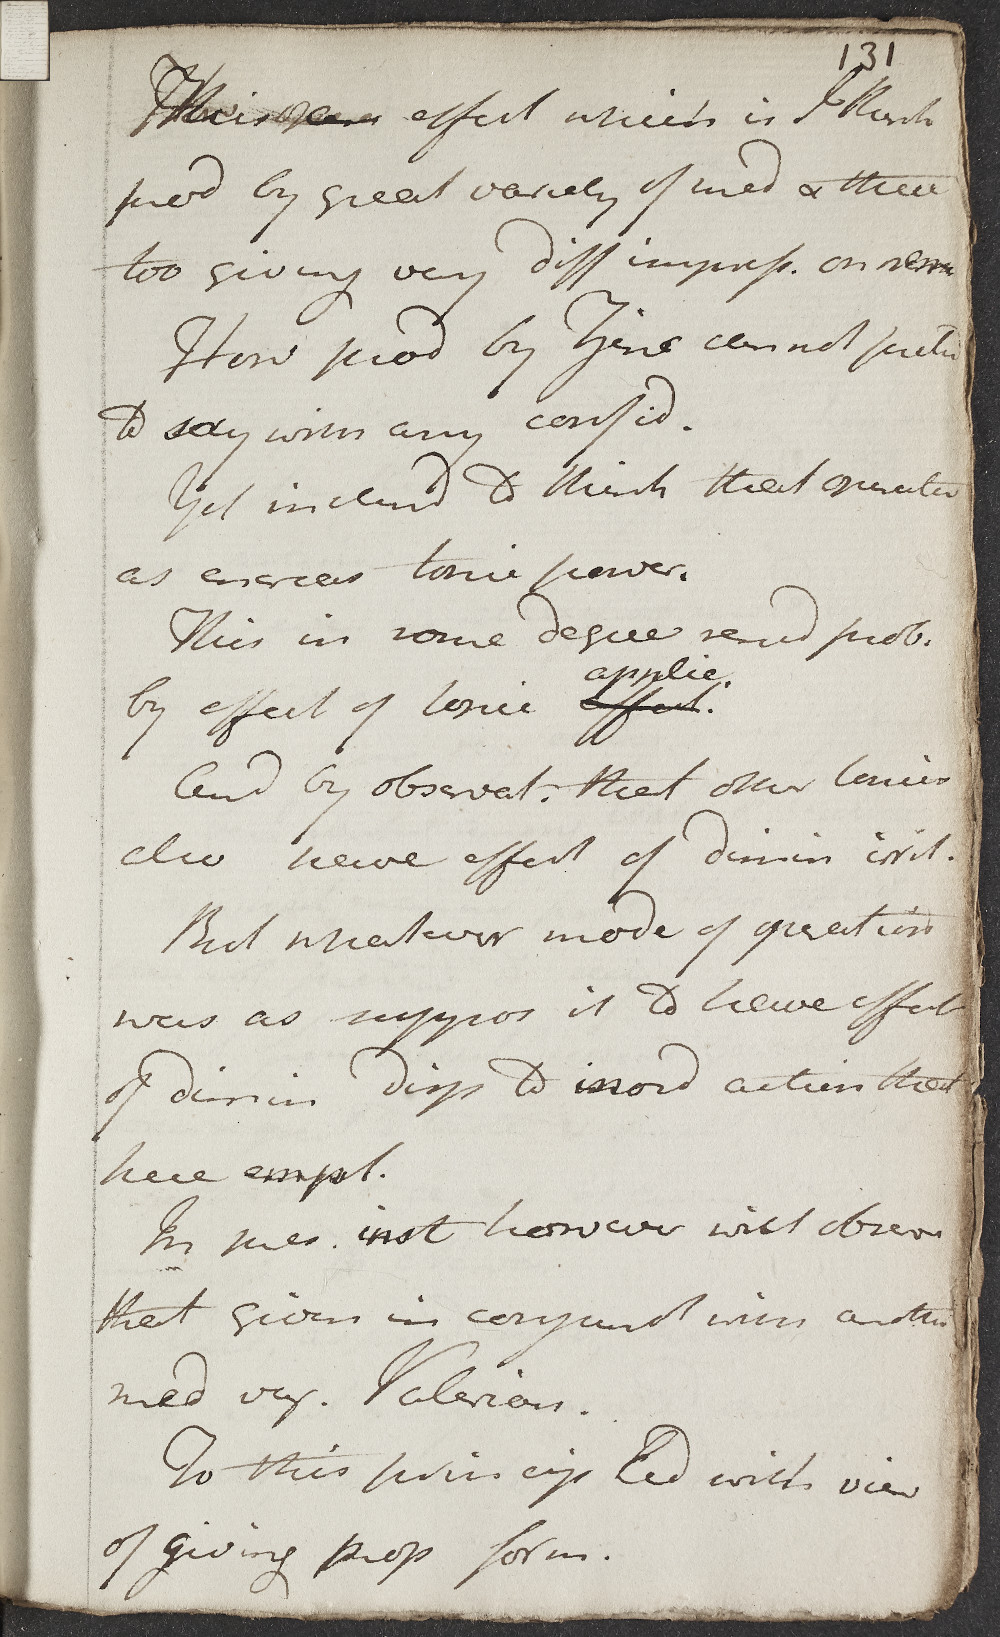 131
This effect which is I think
prod by great variety of med & these
too giving very diff impress. on
How prod by Zinc cannot preten
to say with any confid.
Yet inclend to think that operates
as increas tonic power.
This in some degree rend prob.
by effect of tonic applic. effect.
And by observat. that other tonics
also have effect of dimin irrit.
But whatever mode of operation
was as suppos it to have effect
of dimin disp to inord action that
here empl.
In pres. inst however will observ
that given in conjunct with another
med viz. Valerian.
To this princip led with view
of giving prop form.